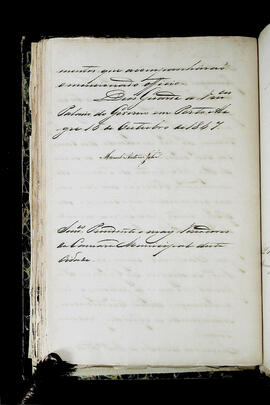 mentos que acompanharão
o mencionado officio.
Deos Guarde a V.ces
Palacio do Governo em Porto Ale
gre 16 de Outubro de 1847.
Manoel Antonio
Snr.es Presidente e mais Vereadores
da Camara Municipal desta
Cidade.